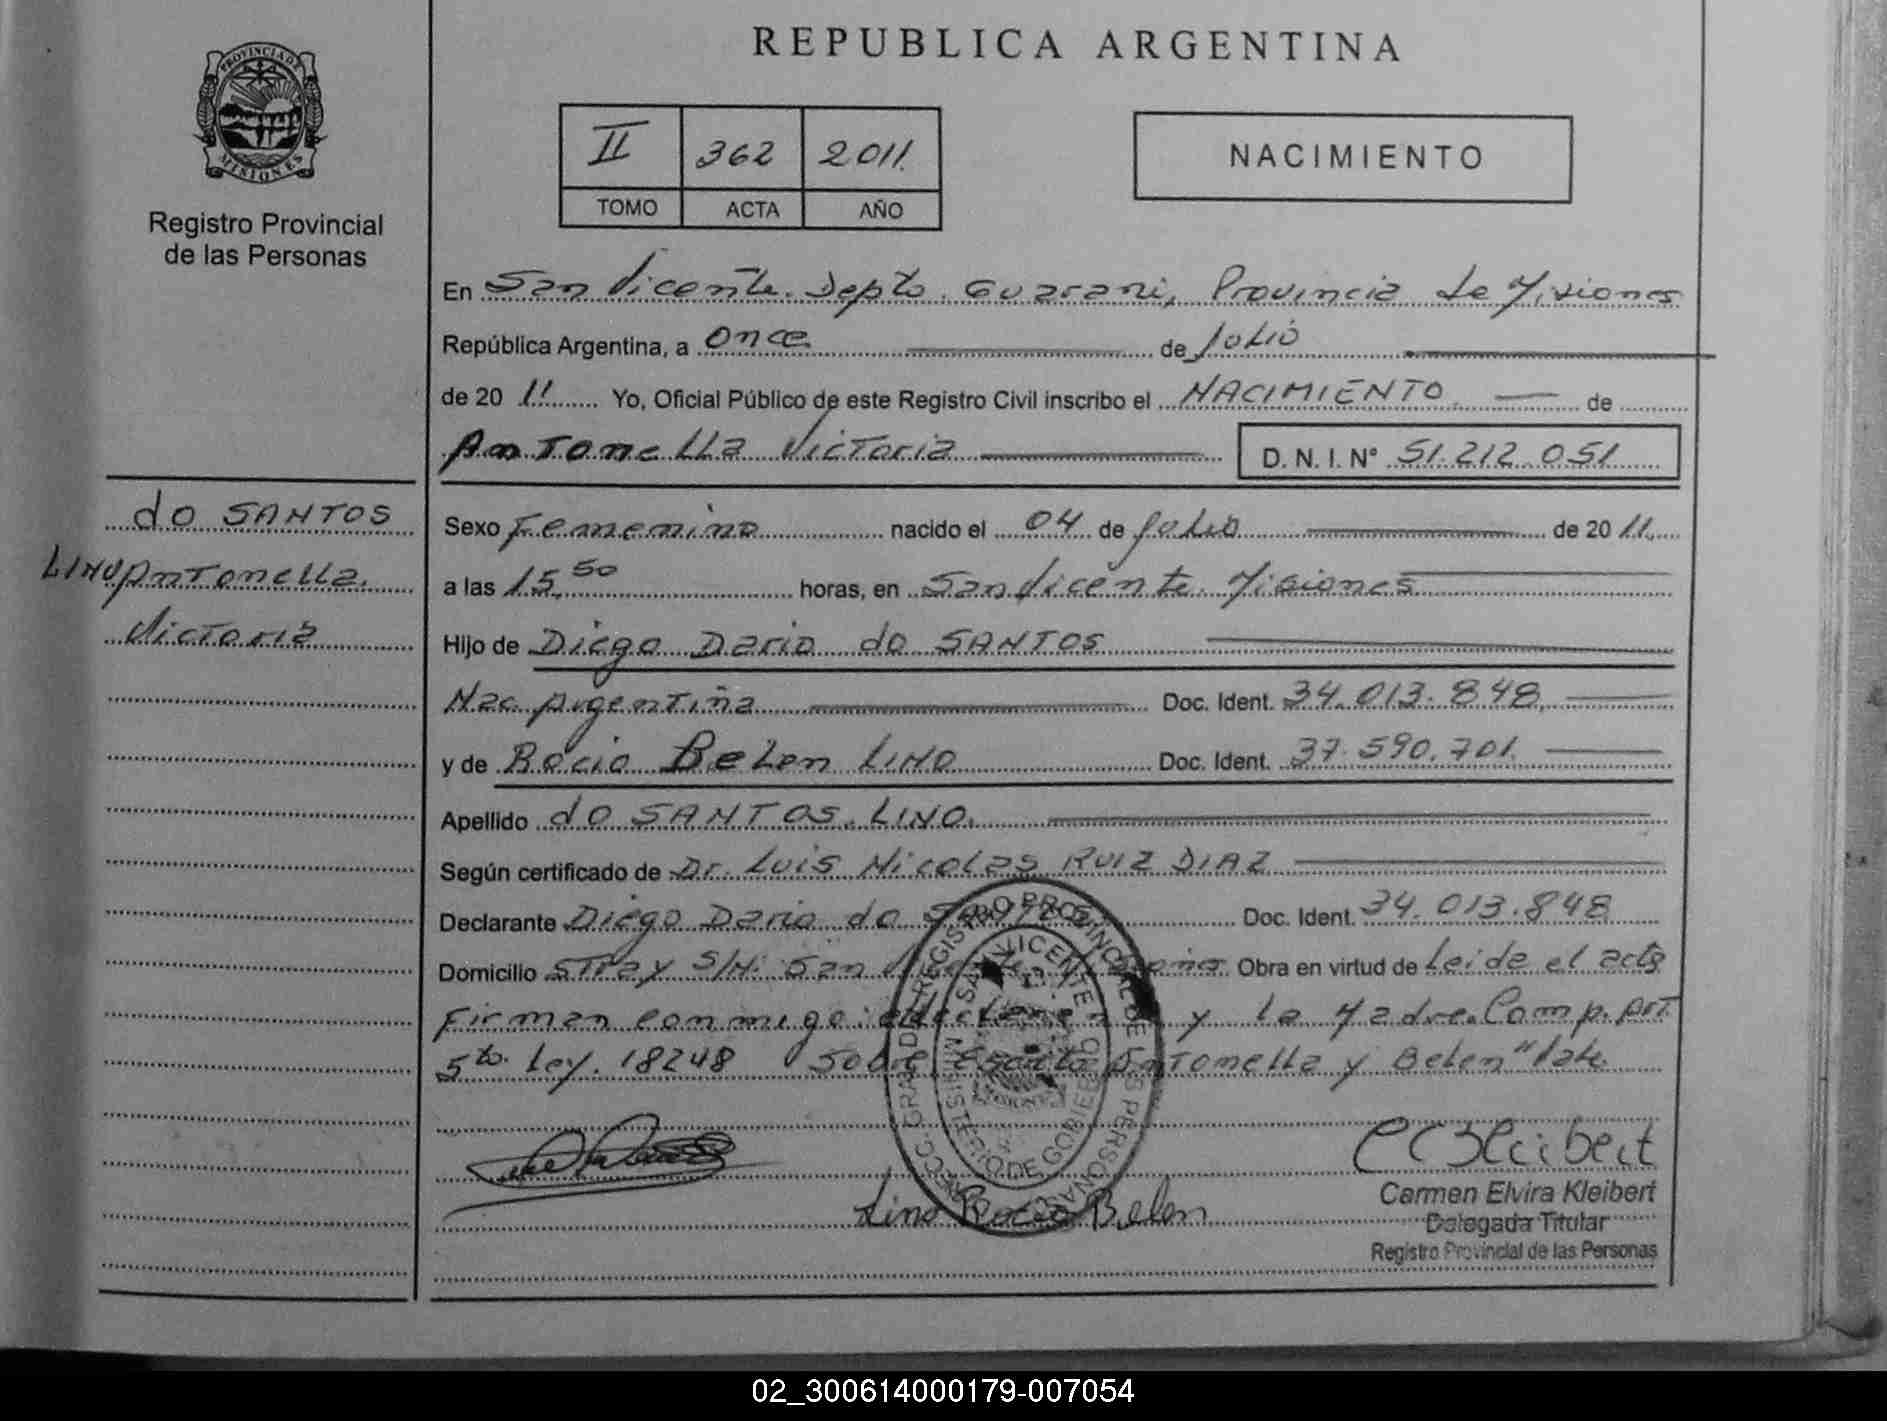 REPUBLICA ARGENTINA
PROVINCIA DE
MISIONES
Registro Provincial
de las Personas
II 362 2011.
TOMO ACTA AÑO
NACIMIENTO
En San Vicente. Depto. Guarani, Provincia de Misiones
República Argentina, a once de Julio
de 20 11 Yo, Oficial Público de este Registro Civil inscribo el NACIMIENTO de
Antonella Victoria D. N. I. N° 51.212.051
do SANTOS
LINO Antonella
Victoria
Sexo Femenino nacido el 04 de Julio de 20 11.
a las 15,50 horas, en San Vicente. Misiones
Hijo de Diego Dario do SANTOS
Nac. Argentina Doc. Ident. 34.013.848
y de Rocio Belen LINO Doc. Ident. 37.590.701.
Apellido do SANTOS. LINO.
Según certificado de Dr. Luis Nicolas RUIZ DIAZ
Declarante Diego Dario do Doc. Ident. 34.013.848
Domicilio S/N. San Obra en virtud de Leida el acta
Firman conmigo: y la Madre. Comp. Art.
5to. Ley. 18248 Sobre Antonella y Belen" Vale
REGISTRO PROVINCIAL DE LAS PERSONAS
SAN VICENTE
MINISTERIO DE GOBIERNO
Lino Rocio Belen
Carmen Elvira Kleibert
Delegada Titular
Registro Provincial de las Personas
02_300614000179-007054